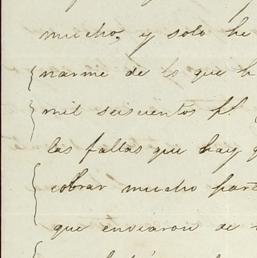 mucho, y solo he
narme de lo que h
mil seiscientos pl
las fallas que hay q
cobrar mucho part
que enviaron de